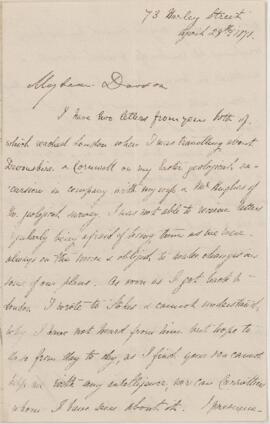 73 Harley Street
April 28th 1871.
My dear Dawson
I have two letters from you both of
which reached London when I was travelling about
Devonshire & Cornwall on my Easter geological ex-
cursion in company with my wife & Mr Hughes of
the geological survey. I was not able to receive letters
regularly being afraid of being
always on the move & obliged to make changes in
some of our plans. As soon as I got back to
London I wrote to & cannot understand
why I have not heard from him but hope to
do so from day to day, as I find your son cannot
help me with any intelligence, nor can Carruthers
whom I have seen about it. I